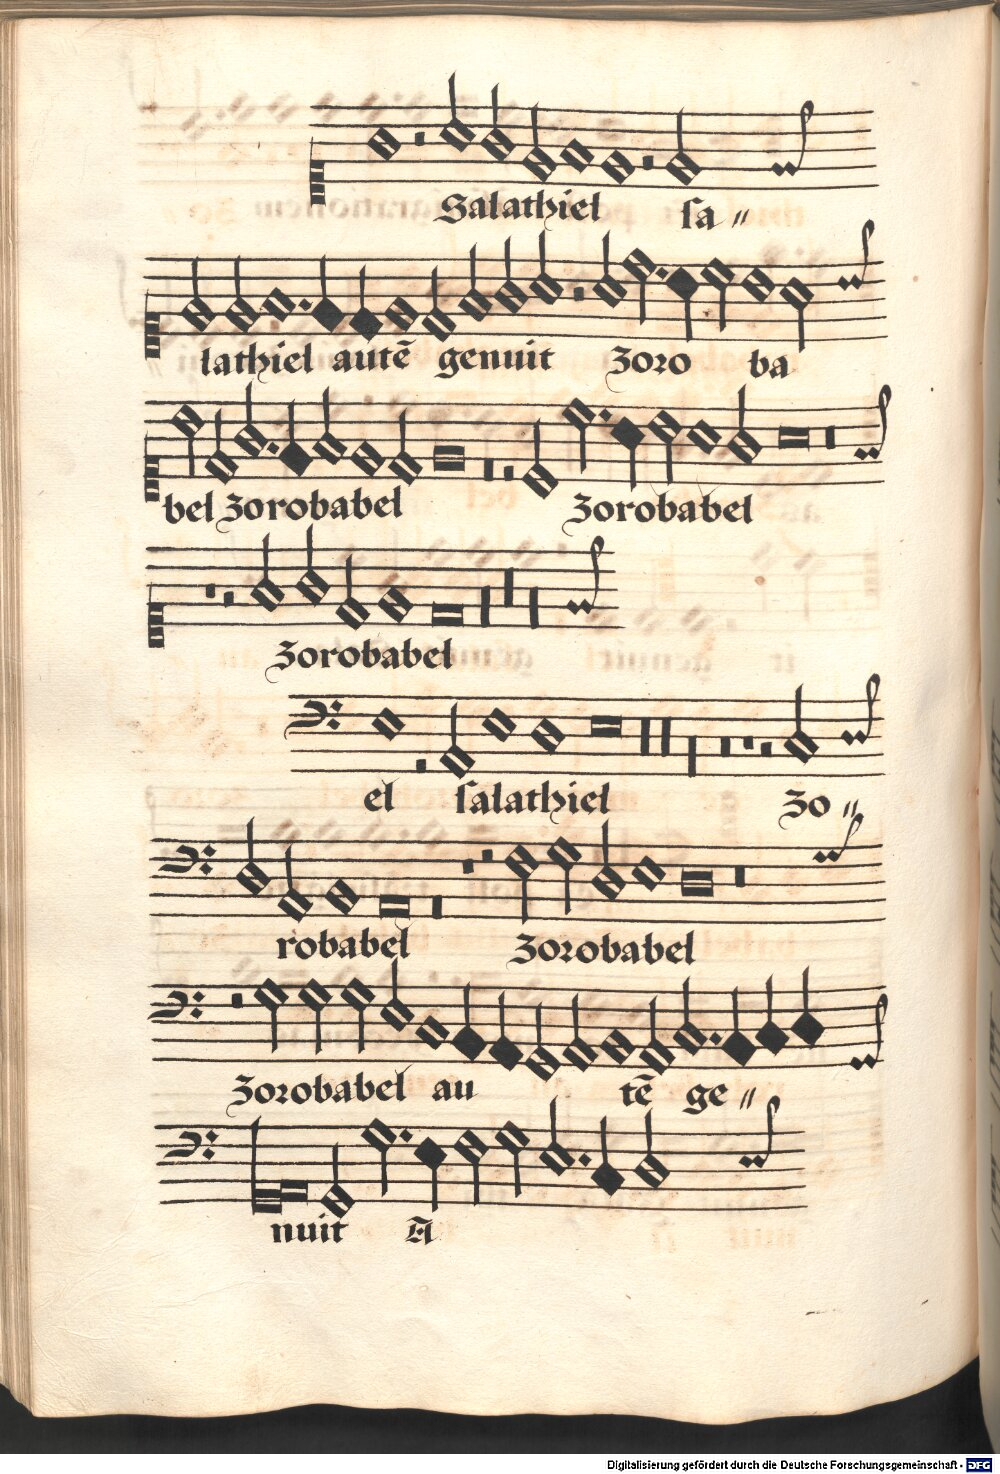 Salathiel sa〃
lathiel autē genuit Zoro ba
bel Zorobabel Zorobabel
Zorobabel
el salathiel Zo〃
robabel Zorobabel
Zorobabel au tē ge〃
nuit A
Digitalisierung gefördert durch die Deutsche Forschungsgemeinschaft - DFG